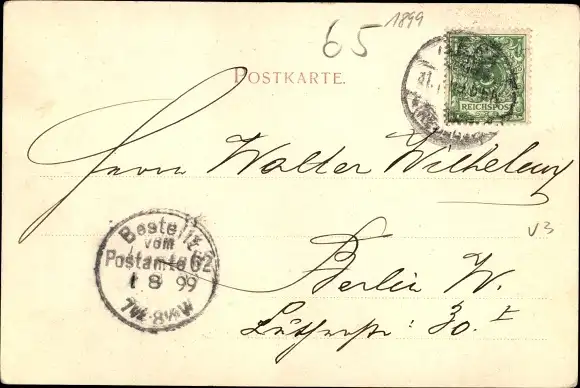 65
1899
POSTKARTE.
5
REICHSPOST
Herrn Walter Wilhelmy
Bestellt
vom
Postamte 62
1 8 99
7¼-8½W
Berlin W.
Lutherstr: 30. I